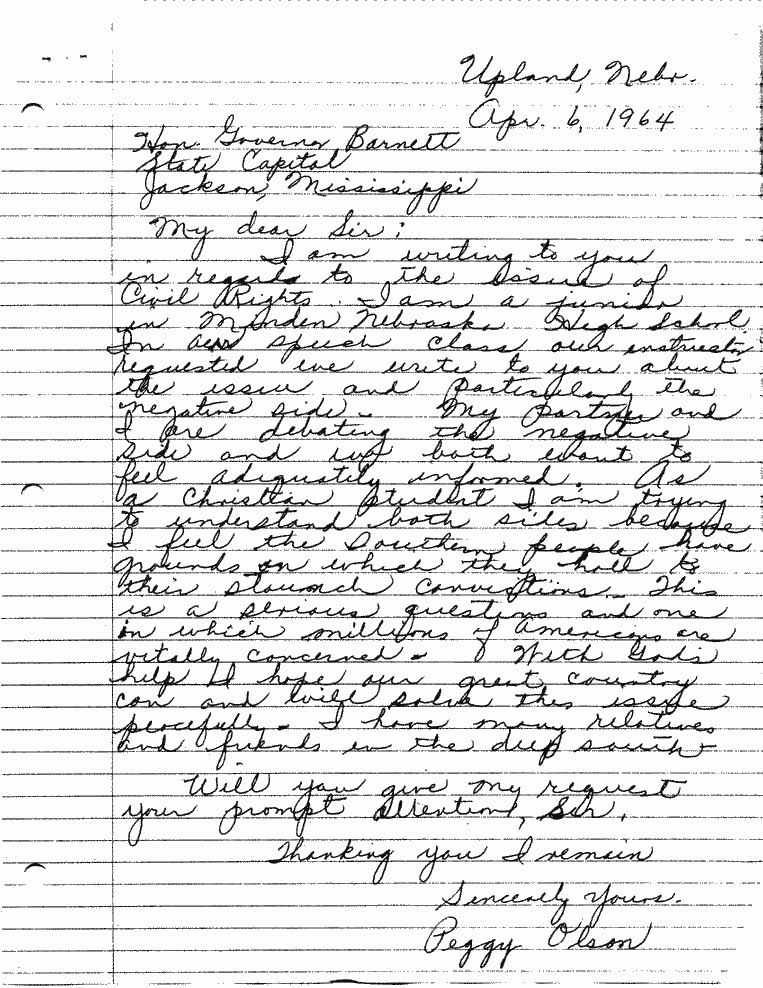 Upland, Nebr.
Apr. 6, 1964
Hon. Governor Barnett
State Capital
Jackson, Mississippi
My dear Sir:
I am writing to you
in regards to the issue of
Civil Rights. I am a junior
in Minden Nebraska High School.
In our speech class our instructor
requested we write to you about
the issue and particularly the
negative side. My partner and
I are debating the negative
side and we both want to
feel adiquatily informed. As
a Christian student I am trying
to understand both sides because
I feel the Southern people have
grounds on which they hold to
their staunch convictions. This
is a serious question and one
in which millions of Americans are
vitally concerned. With God's
help I hope our great country
can and will solve this issue
peacefully. I have many relatives
and friends in the deep south.
Will you give my request
your prompt attention, Sir.
Thanking you I remain
Sincerely Yours.
Peggy Olson